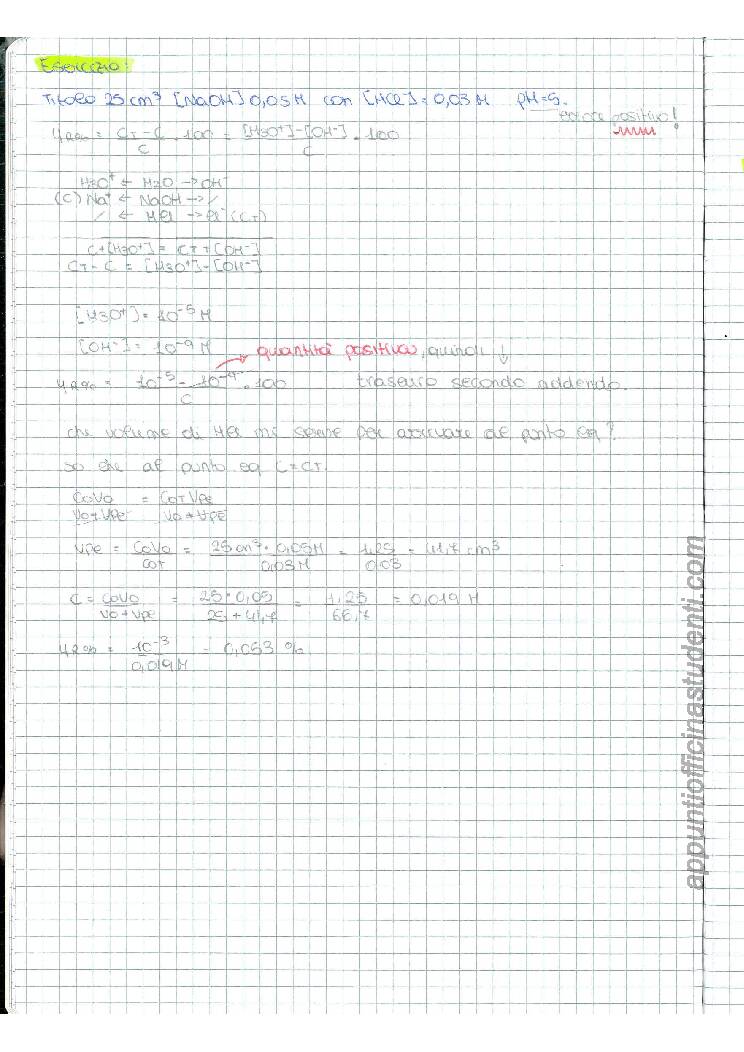 Esercizio:
Titolo 25 cm³ [NaOH] 0,05M con [HCl] = 0,03M pH=5.
errore positivo!
ER% = CT - C / C · 100 = [H3O+] - [OH-] / C · 100
H3O+ ← H2O → OH-
(C) Na+ ← NaOH → /
/ ← HCl → Cl- (CT)
C + [H3O+] = CT + [OH-]
CT - C = [H3O+] - [OH-]
[H3O+] = 10^-5 M
[OH-] = 10^-9 M
quantità positiva, quindi ↓
ER% = 10^-5 - 10^-9 / C · 100 trascuro secondo addendo.
che volume di HCl mi serve per arrivare al punto eq?
so che al punto eq C = CT.
CoVo / Vo+Vpe = CoT Vpe / Vo+Vpe
Vpe = CoVo / CoT = 25 cm³ · 0,05M / 0,03 M = 1,25 / 0,03 = 41,7 cm³
C = CoVo / Vo+Vpe = 25 · 0,05 / 25 + 41,7 = 1,25 / 66,7 = 0,019 M
ER% = 10^-3 / 0,019 M = 0,053 %
appuntiofficinastudenti.com